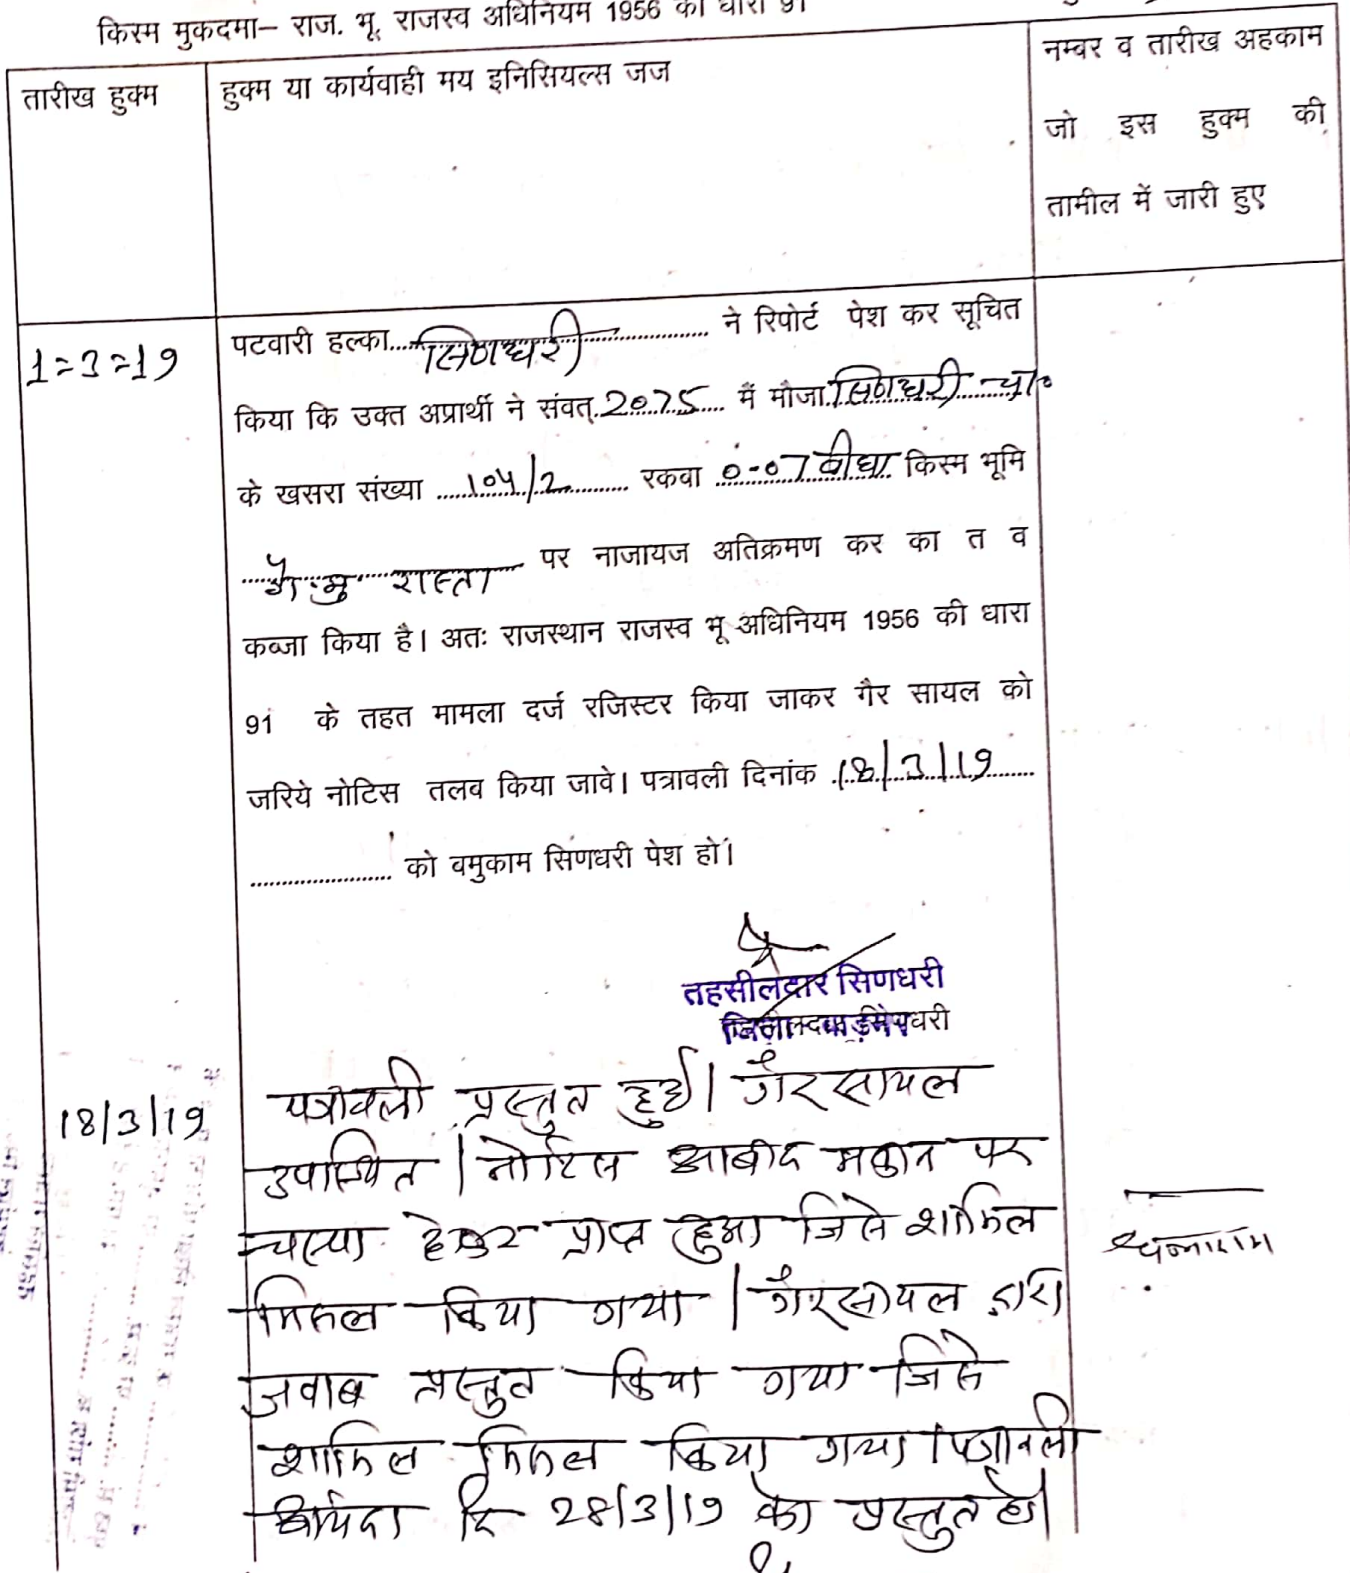 किस्म मुकदमा– राज. भू. राजस्व अधिनियम 1956 की धारा 91
तारीख हुक्म
हुक्म या कार्यवाही मय इनिसियल्स जज
नम्बर व तारीख अहकाम
जो इस हुक्म की
तामील में जारी हुए
1=3=19
पटवारी हल्का....सिणधरी.... ने रिपोर्ट पेश कर सूचित
किया कि उक्त अप्रार्थी ने संवत् 2075 में मौजा सिणधरी चा०
के खसरा संख्या ....104/2.... रकवा 0-07 बीघा किस्म भूमि
गै.मु रास्ता पर नाजायज अतिक्रमण कर का त व
कब्जा किया है। अतः राजस्थान राजस्व भू अधिनियम 1956 की धारा
91 के तहत मामला दर्ज रजिस्टर किया जाकर गैर सायल को
जरिये नोटिस तलब किया जावे। पत्रावली दिनांक .18/3/19
.................... को वमुकाम सिणधरी पेश हो।
तहसीलदार सिणधरी
18/3/19
पत्रावली प्रस्तुत हुई। गैरसायल
उपस्थित। नोटिस मकान पर
चस्पा होकर प्राप्त हुआ जिसे शामिल
मिसल किया गया। गैरसायल द्वारा
जवाब प्रस्तुत किया गया जिसे
शामिल मिसल किया गया। पत्रावली
आयंदा दि 28/3/19 को प्रस्तुत हो।